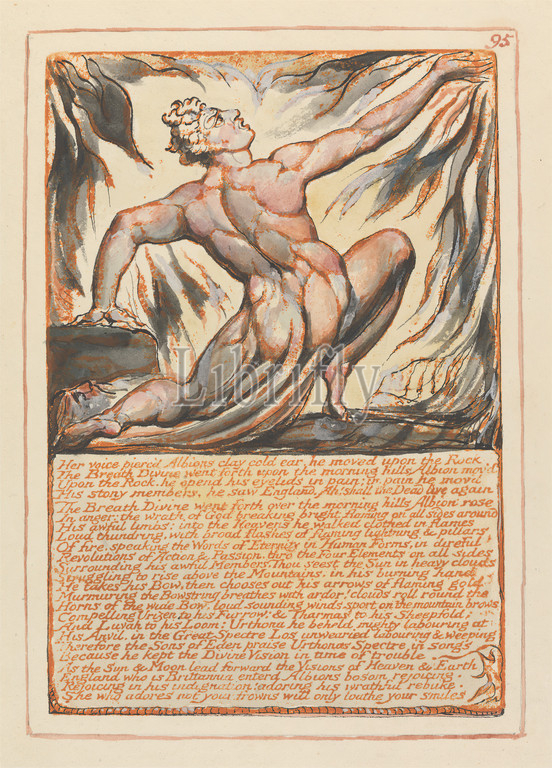 95
Librifly
Her voice pierc'd Albions clay cold ear. he moved upon the Rock
The Breath Divine went forth upon the morning hills, Albion mov'd
Upon the Rock, he opend his eyelids in pain; in pain he mov'd
His stony members, he saw England. Ah! shall the Dead live again
The Breath Divine went forth over the morning hills Albion rose
In anger: the wrath of God breaking bright flaming on all sides around
His awful limbs: into the Heavens he walked clothed in flames
Loud thundring, with broad flashes of flaming lightning & pillars
Of fire, speaking the Words of Eternity in Human Forms, in direful
Revolutions of Action & Passion, thro the Four Elements on all sides
Surrounding his awful Members. Thou seest the Sun in heavy clouds
Struggling to rise above the Mountains. in his burning hand
He takes his Bow, then chooses out his arrows of flaming gold
Murmuring the Bowstring breathes with ardor! clouds roll round the
Horns of the wide Bow, loud sounding winds sport on the mountain brows
Compelling Urizen to his Furrow; & Tharmas to his Sheepfold;
And Luvah to his Loom: Urthona he beheld mighty labouring at
His Anvil, in the Great Spectre Los unwearied labouring & weeping
Therefore the Sons of Eden praise Urthonas Spectre in songs
Because he kept the Divine Vision in time of trouble.
As the Sun & Moon lead forward the Visions of Heaven & Earth
England who is Brittannia enterd Albions bosom rejoicing,
Rejoicing in his indignation! adoring his wrathful rebuke.
She who adores not your frowns will only loathe your smiles